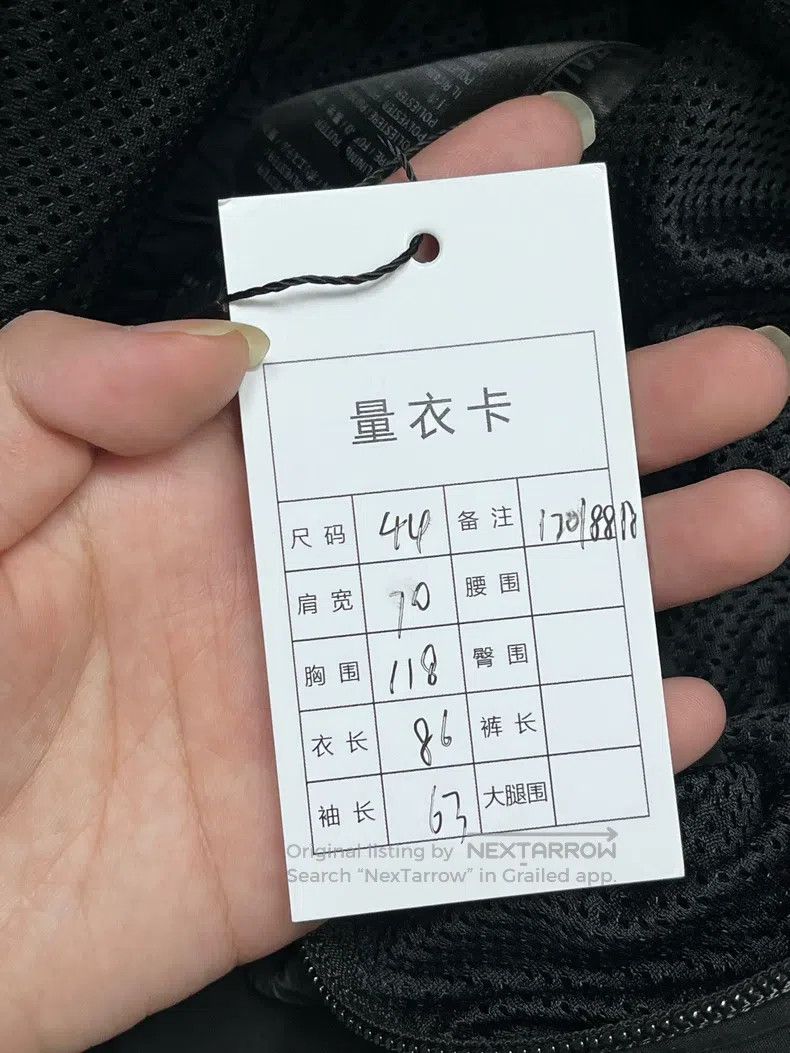 POLYESTER
POLYESTER
量衣卡
尺码 44 备注 170/88A
肩宽 70 腰围
胸围 118 臀围
衣长 86 裤长
袖长 63 大腿围
Original listing by NEXTARROW
Search “NexTarrow” in Grailed app.